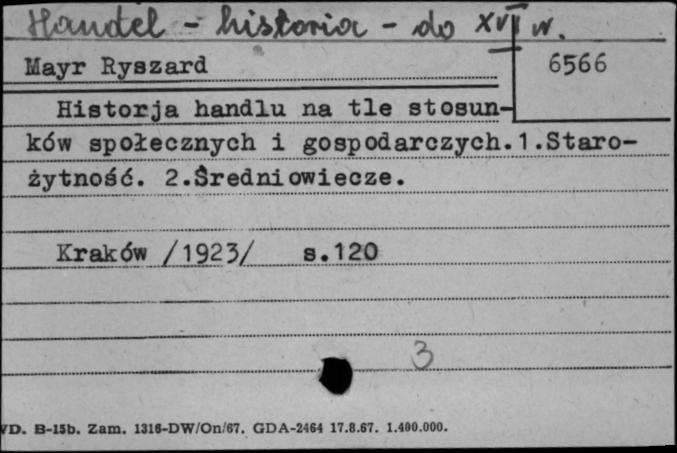 Handel - historia - do XVI w.
Mayr Ryszard
6566
Historja handlu na tle stosun-
ków społecznych i gospodarczych.1.Staro-
żytność. 2.Średniowiecze.
Kraków /1923/ s.120
3
VD. B-15b. Zam. 1316-DW/On/67. GDA-2464 17.8.67. 1.400.000.